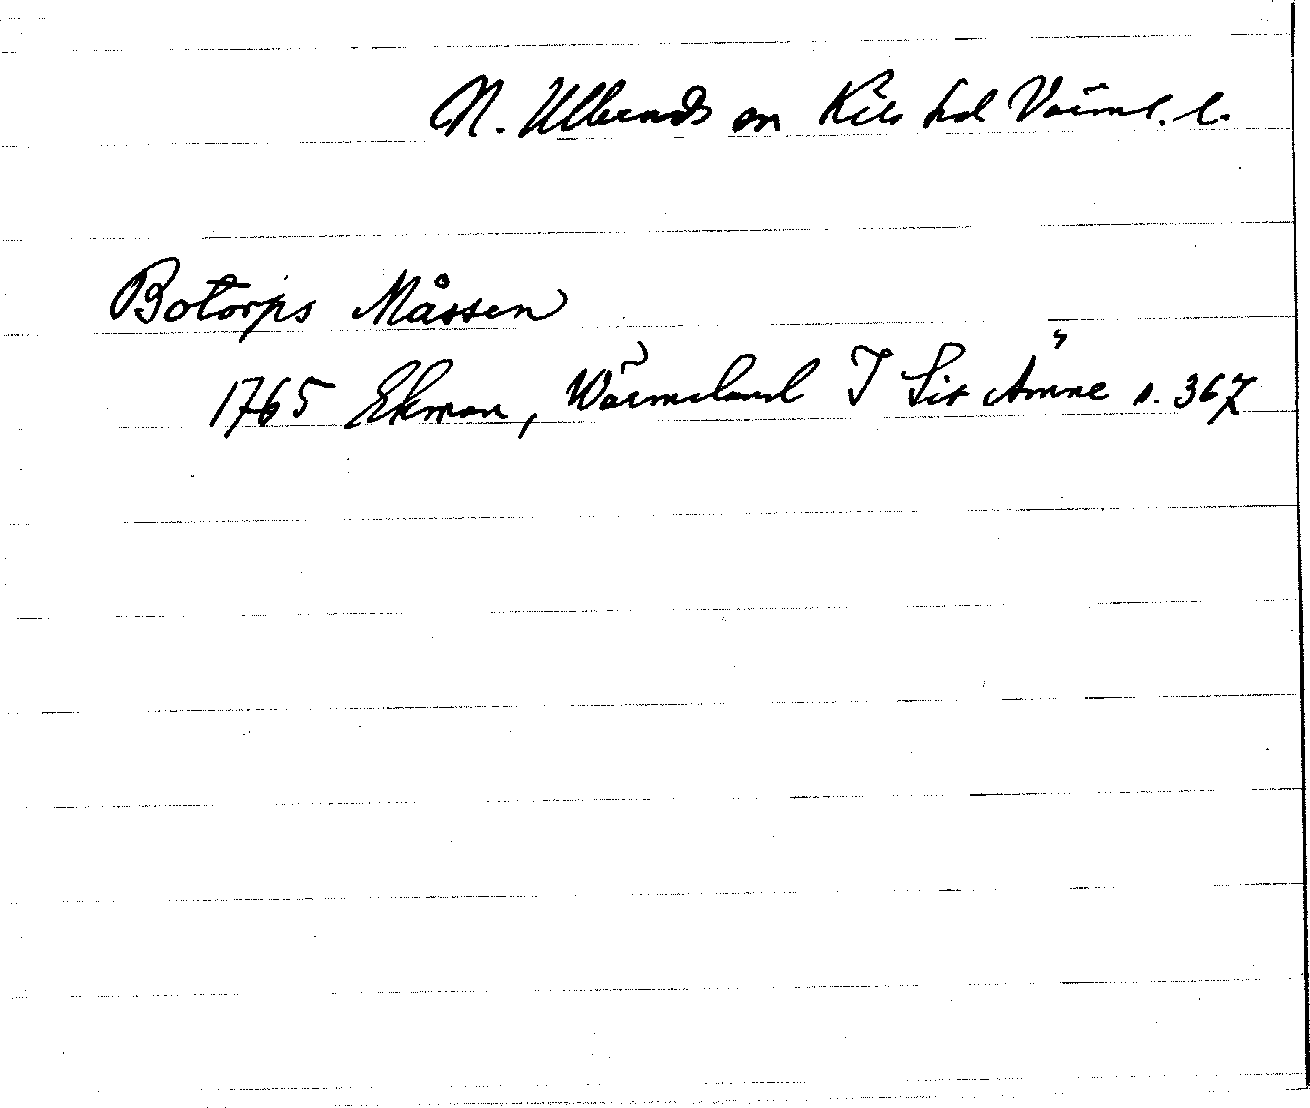 N. Ulleruds sn Kils hd Värml. l.
Botorps Måssen
1765 Ekman, Wärmeland I Lit Ämne s. 367